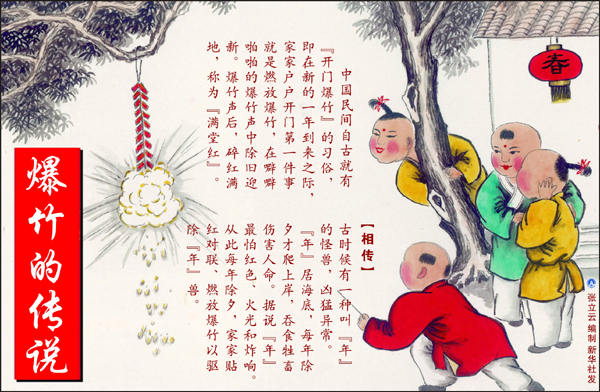 爆竹的传说
中国民间自古就有
『开门爆竹』的习俗，
即在新的一年到来之际，
家家户户开门第一件事
就是燃放爆竹，在噼噼
啪啪的爆竹声中除旧迎
新。爆竹声后，碎红满
地，称为『满堂红』。
【相传】
古时候有一种叫『年』
的怪兽，凶猛异常。
『年』居海底，每年除
夕才爬上岸，吞食牲畜
伤害人命。据说『年』
最怕红色、火光和炸响。
从此每年除夕，家家贴
红对联、燃放爆竹以驱
除『年』兽。
春
张立云 编制 新华社发